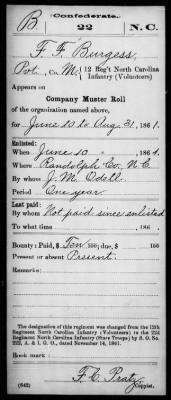 Confederate.
B. 22 N.C.
F. F. Burgess,
Pvt., Co. M, 12 Reg't North Carolina
Infantry (Volunteers)
Appears on
Company Muster Roll
of the organization named above,
for June 10 to Aug 31, 1861.
Enlisted:
When June 10, 1861.
Where Randolph Co. N.C.
By whom J. M. Odell
Period One year
Last paid:
By whom Not paid since enlisted
To what time , 186 .
Bounty: Paid, $ Ten 100; due, $ 100
Present or absent Present.
Remarks:
The designation of this regiment was changed from the 12th
Regiment North Carolina Infantry (Volunteers) to the 22d
Regiment North Carolina Infantry (State Troops) by S. O. No.
222, A. & I. G. O., dated November 14, 1861.
Book mark:
F. C. Pratz
(642) Copyist.